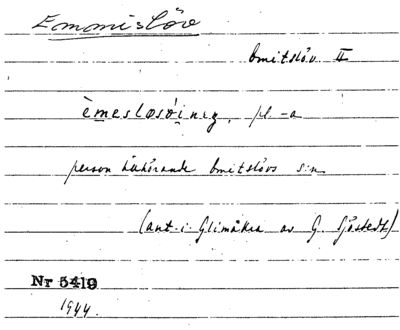 Emmislöv
Emitslöv II
pl. -a
person tillhörande Emitslövs s:n
(ant. i Glimåkra av G. Sjöstedt)
Nr 5419
1944.